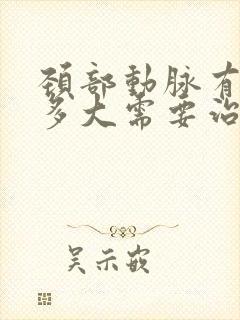 頚部動脉有
多大需要治
吴示嵌